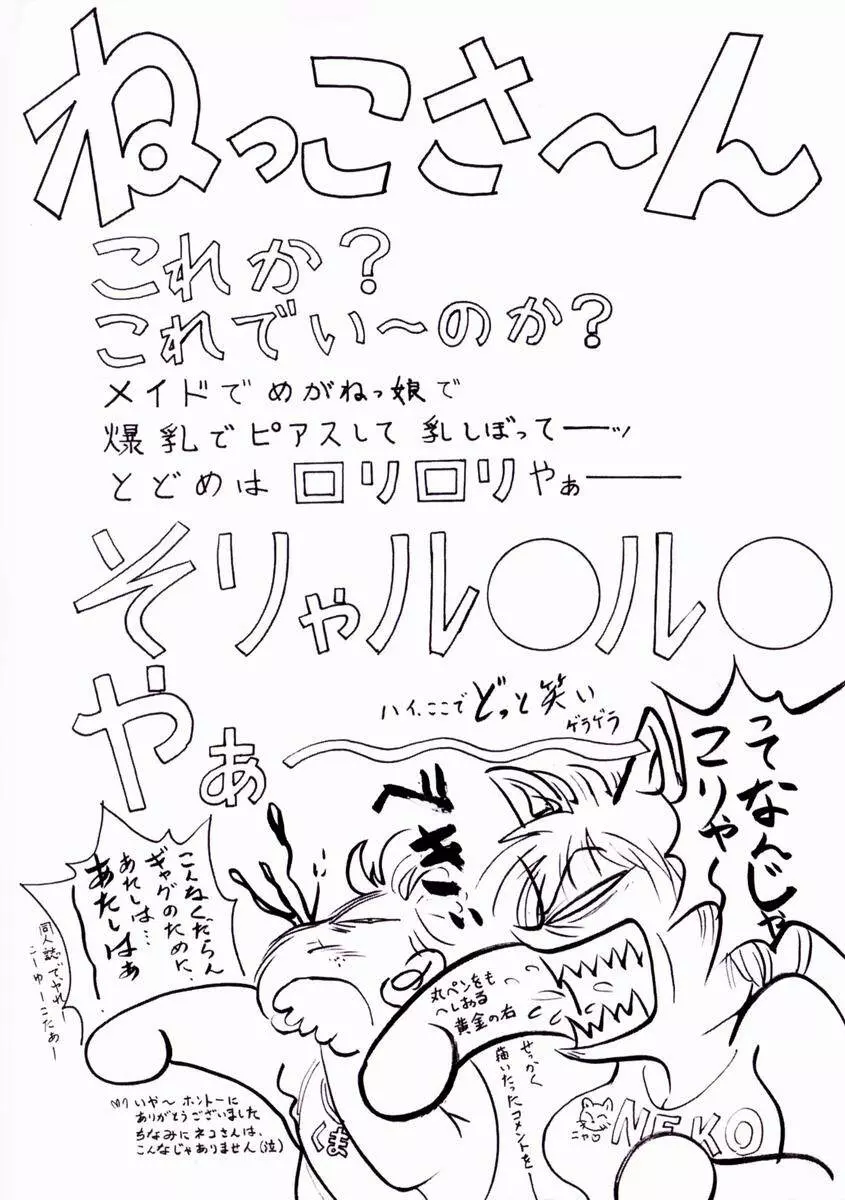 ねっこさ～ん
これか？
これでい～のか？
メイドでめがねっ娘で
爆乳でピアスして乳しぼってーッ
とどめはロリロリやぁ――
そりゃル○ル○
やぁ
ハイ、ここでどっと笑い
ゲラゲラ
ってなんじゃ
こりゃ～
べきぃ
こんなくだらん
ギャグのために、
あたしは…
あたしはぁ
同人誌でやれ
こーゆーこたぁー
丸ペンをも
へしおる
黄金の右
せっかく
描いたったコメントを―
いや～ホントーに
ありがとうございました
ちなみにネコさんは、
こんなじゃありません（泣）
くま
ニャ♡
NEKO